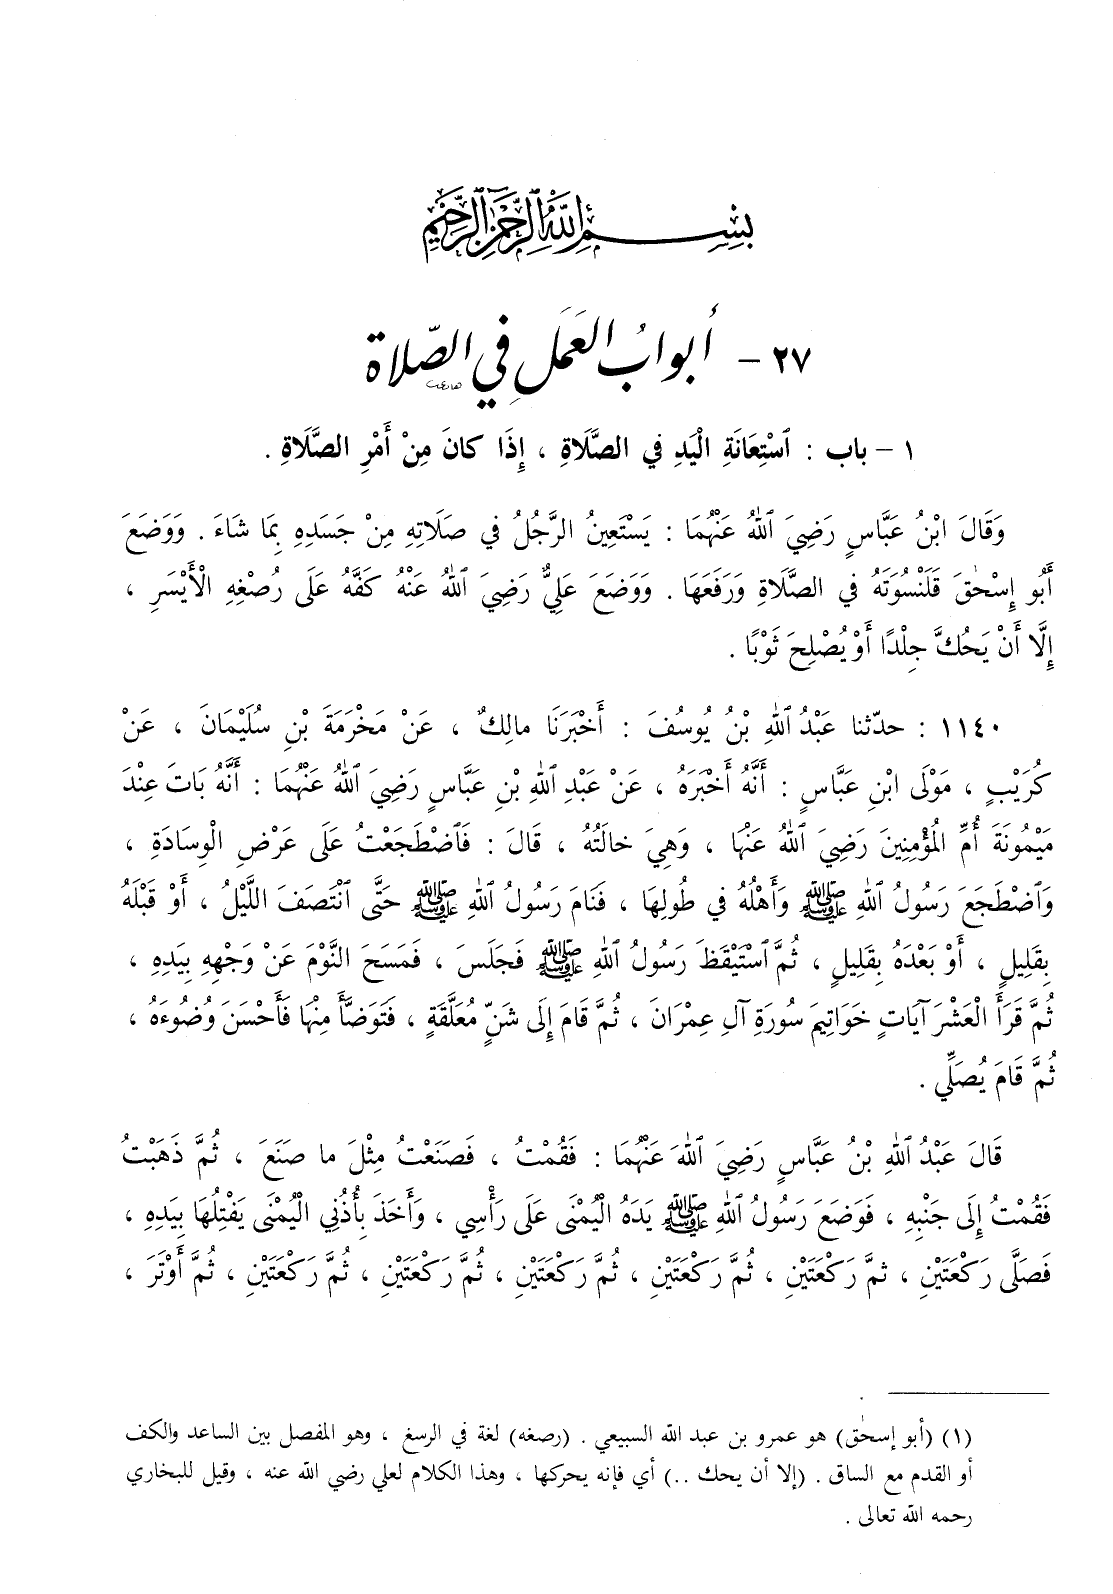 بِسْمِ ٱللَّهِ ٱلرَّحْمَٰنِ ٱلرَّحِيمِ
٢٧ - أبوابُ العَمَلِ فِي الصَّلاة
١ - باب : ٱسْتِعَانَةِ الْيَدِ فِي الصَّلَاةِ ، إِذَا كانَ مِنْ أَمْرِ الصَّلَاةِ .
وَقَالَ ابْنُ عَبَّاسٍ رَضِيَ ٱللهُ عَنْهُمَا : يَسْتَعِينُ الرَّجُلُ في صَلَاتِهِ مِنْ جَسَدِهِ بِمَا شَاءَ . وَوَضَعَ
أَبُو إِسْحٰقَ قَلَنْسُوَتَهُ في الصَّلَاةِ وَرَفَعَهَا . وَوَضَعَ عَلِيٌّ رَضِيَ ٱللهُ عَنْهُ كَفَّهُ عَلَى رُصْغِهِ الْأَيْسَرِ ،
إِلَّا أَنْ يَحُكَّ جِلْدًا أَوْ يُصْلِحَ ثَوْبًا .
١١٤٠ : حدّثنا عَبْدُ ٱللهِ بْنُ يُوسُفَ : أَخْبَرَنَا مالِكٌ ، عَنْ مَخْرَمَةَ بْنِ سُلَيْمَانَ ، عَنْ
كُرَيْبٍ ، مَوْلَى ابْنِ عَبَّاسٍ : أَنَّهُ أَخْبَرَهُ ، عَنْ عَبْدِ ٱللهِ بْنِ عَبَّاسٍ رَضِيَ ٱللهُ عَنْهُمَا : أَنَّهُ بَاتَ عِنْدَ
مَيْمُونَةَ أُمِّ الْمُؤْمِنِينَ رَضِيَ ٱللهُ عَنْهَا ، وَهِيَ خالَتُهُ ، قَالَ : فَٱضْطَجَعْتُ عَلَى عَرْضِ الْوِسَادَةِ ،
وَٱضْطَجَعَ رَسُولُ ٱللهِ ﷺ وَأَهْلُهُ في طُولِهَا ، فَنَامَ رَسُولُ ٱللهِ ﷺ حَتَّى ٱنْتَصَفَ اللَّيْلُ ، أَوْ قَبْلَهُ
بِقَلِيلٍ ، أَوْ بَعْدَهُ بِقَلِيلٍ ، ثُمَّ ٱسْتَيْقَظَ رَسُولُ ٱللهِ ﷺ فَجَلَسَ ، فَمَسَحَ النَّوْمَ عَنْ وَجْهِهِ بِيَدِهِ ،
ثُمَّ قَرَأَ الْعَشْرَ آيَاتٍ خَوَاتِيمَ سُورَةِ آلِ عِمْرَانَ ، ثُمَّ قَامَ إِلَى شَنٍّ مُعَلَّقَةٍ ، فَتَوَضَّأَ مِنْهَا فَأَحْسَنَ وُضُوءَهُ ،
ثُمَّ قَامَ يُصَلِّي .
قَالَ عَبْدُ ٱللهِ بْنُ عَبَّاسٍ رَضِيَ ٱللهُ عَنْهُمَا : فَقُمْتُ ، فَصَنَعْتُ مِثْلَ ما صَنَعَ ، ثُمَّ ذَهَبْتُ
فَقُمْتُ إِلَى جَنْبِهِ ، فَوَضَعَ رَسُولُ ٱللهِ ﷺ يَدَهُ الْيُمْنَى عَلَى رَأْسِي ، وَأَخَذَ بِأُذُنِي الْيُمْنَى يَفْتِلُهَا بِيَدِهِ ،
فَصَلَّى رَكْعَتَيْنِ ، ثمَّ رَكْعَتَيْنِ ، ثُمَّ رَكْعَتَيْنِ ، ثُمَّ رَكْعَتَيْنِ ، ثُمَّ رَكْعَتَيْنِ ، ثُمَّ رَكْعَتَيْنِ ، ثُمَّ أَوْتَرَ ،
(١) (أبو إسحٰق) هو عمرو بن عبد الله السبيعي . (رصغه) لغة في الرسغ ، وهو المفصل بين الساعد والكف
أو القدم مع الساق . (إلا أن يحك ..) أي فإنه يحركها ، وهذا الكلام لعلي رضي الله عنه ، وقيل للبخاري
رحمه الله تعالى .